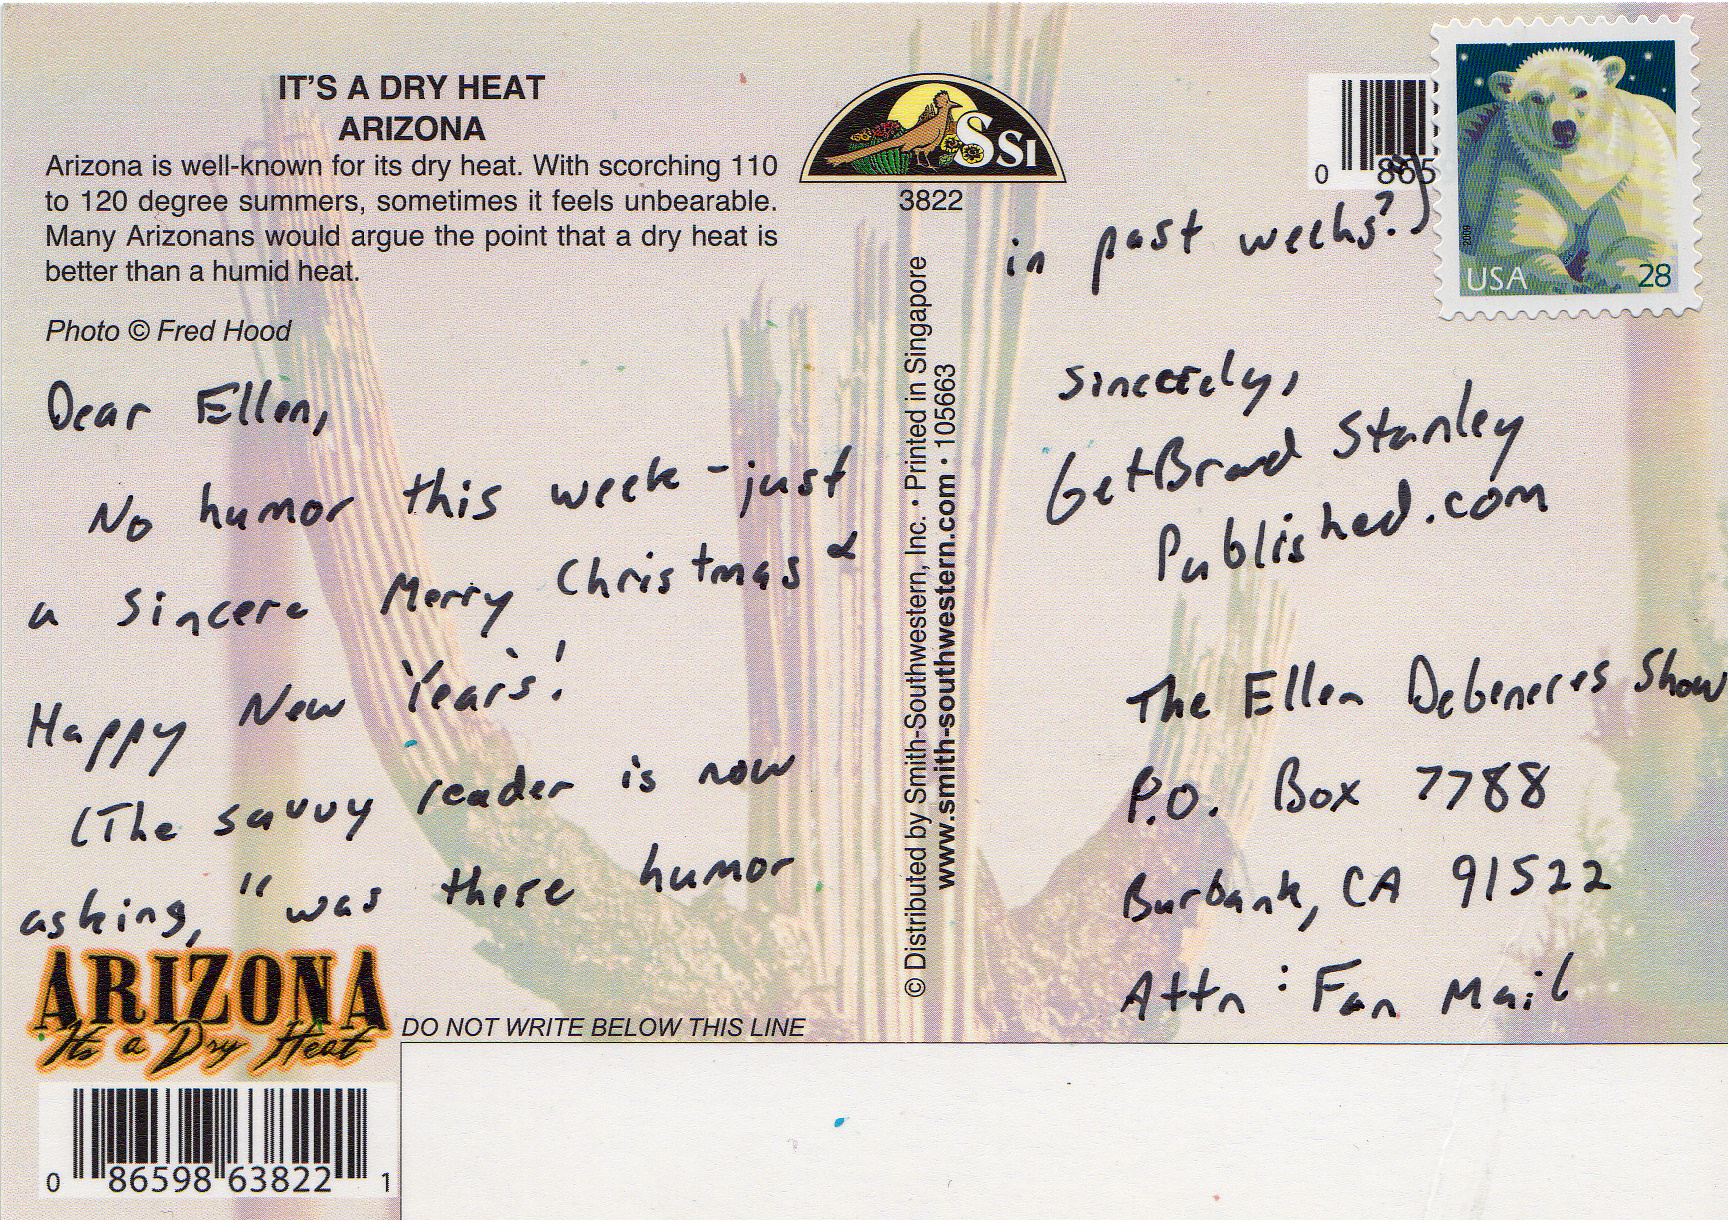 IT'S A DRY HEAT
ARIZONA
Arizona is well-known for its dry heat. With scorching 110
to 120 degree summers, sometimes it feels unbearable.
Many Arizonans would argue the point that a dry heat is
better than a humid heat.
Photo © Fred Hood
Dear Ellen,
No humor this week - just
a sincere Merry Christmas &
Happy New Year's!
(The savvy reader is now
asking, "was there humor
ARIZONA
It's a Dry Heat
DO NOT WRITE BELOW THIS LINE
0 86598 63822 1
SSI
3822
© Distributed by Smith-Southwestern, Inc. • Printed in Singapore
www.smith-southwestern.com • 105663
0 865
2009
USA 28
in past weeks?")
Sincerely,
GetBrad Stanley
Published.com
The Ellen Degeneres Show
P.O. Box 7788
Burbank, CA 91522
Attn: Fan Mail